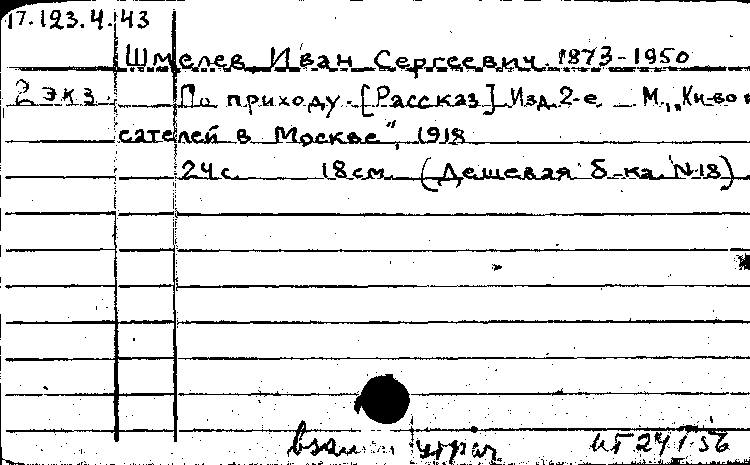 17.123.4.43
Шмелев, Иван Сергеевич. 1873-1950
2 экз. По приходу. [Рассказ] Изд. 2-е М., „Кн-во
сателей в Москве“, 1918
24 с. 18 см (Дешевая б-ка №18)
взамен утрач